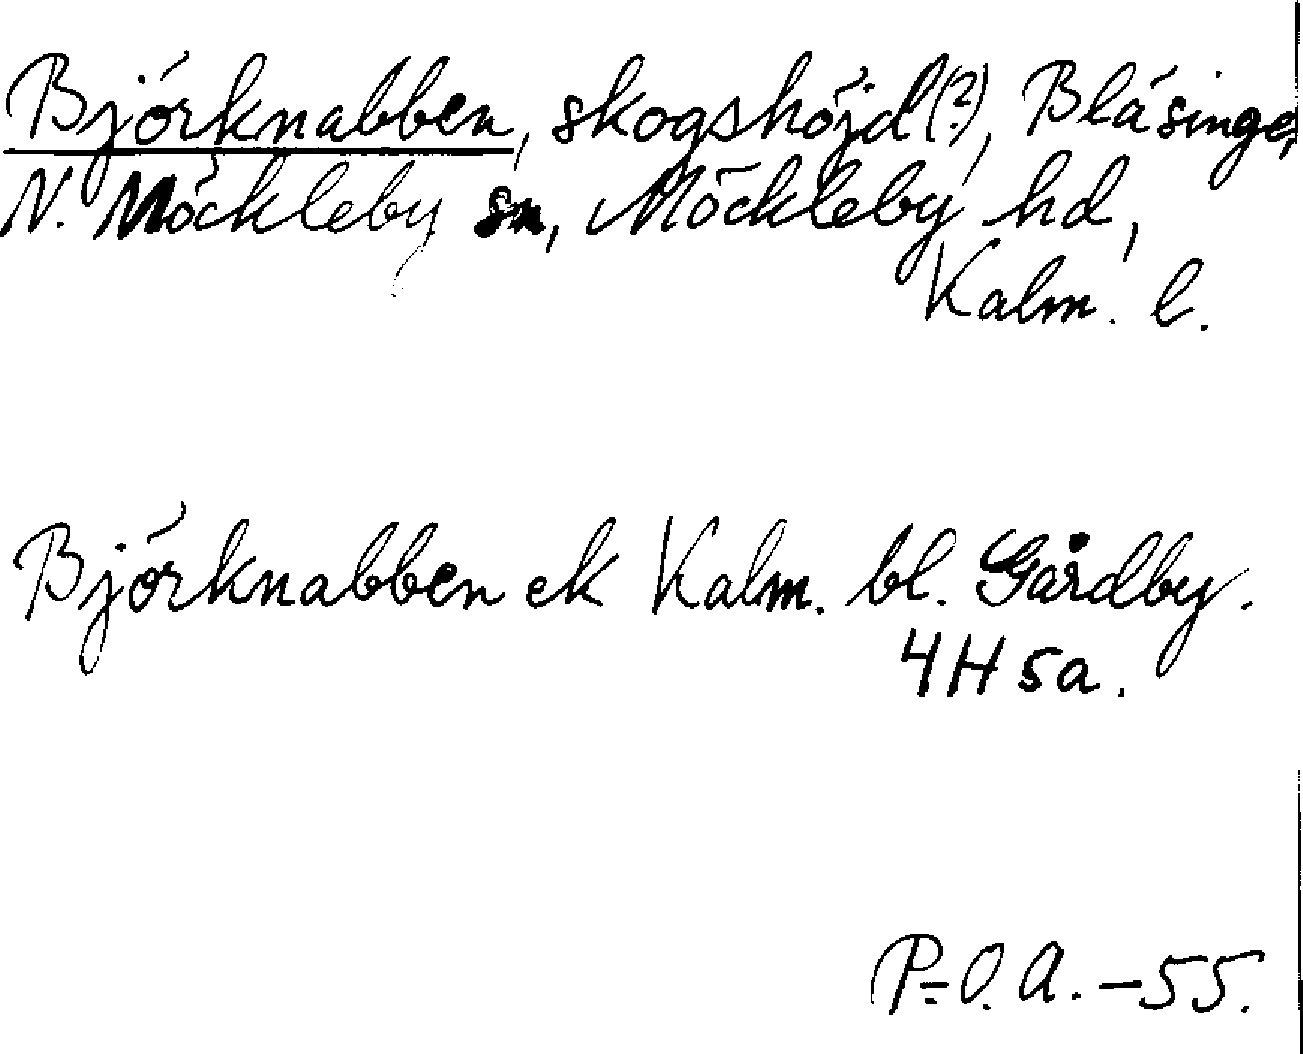 Björknabben, skogshöjd(?), Bläsinge,
N. Möckleby sn, Möckleby hd,
Kalm. l.
Björknabben ek Kalm. bl. Gårdby.
4H 5a.
P.-O. A. -55.